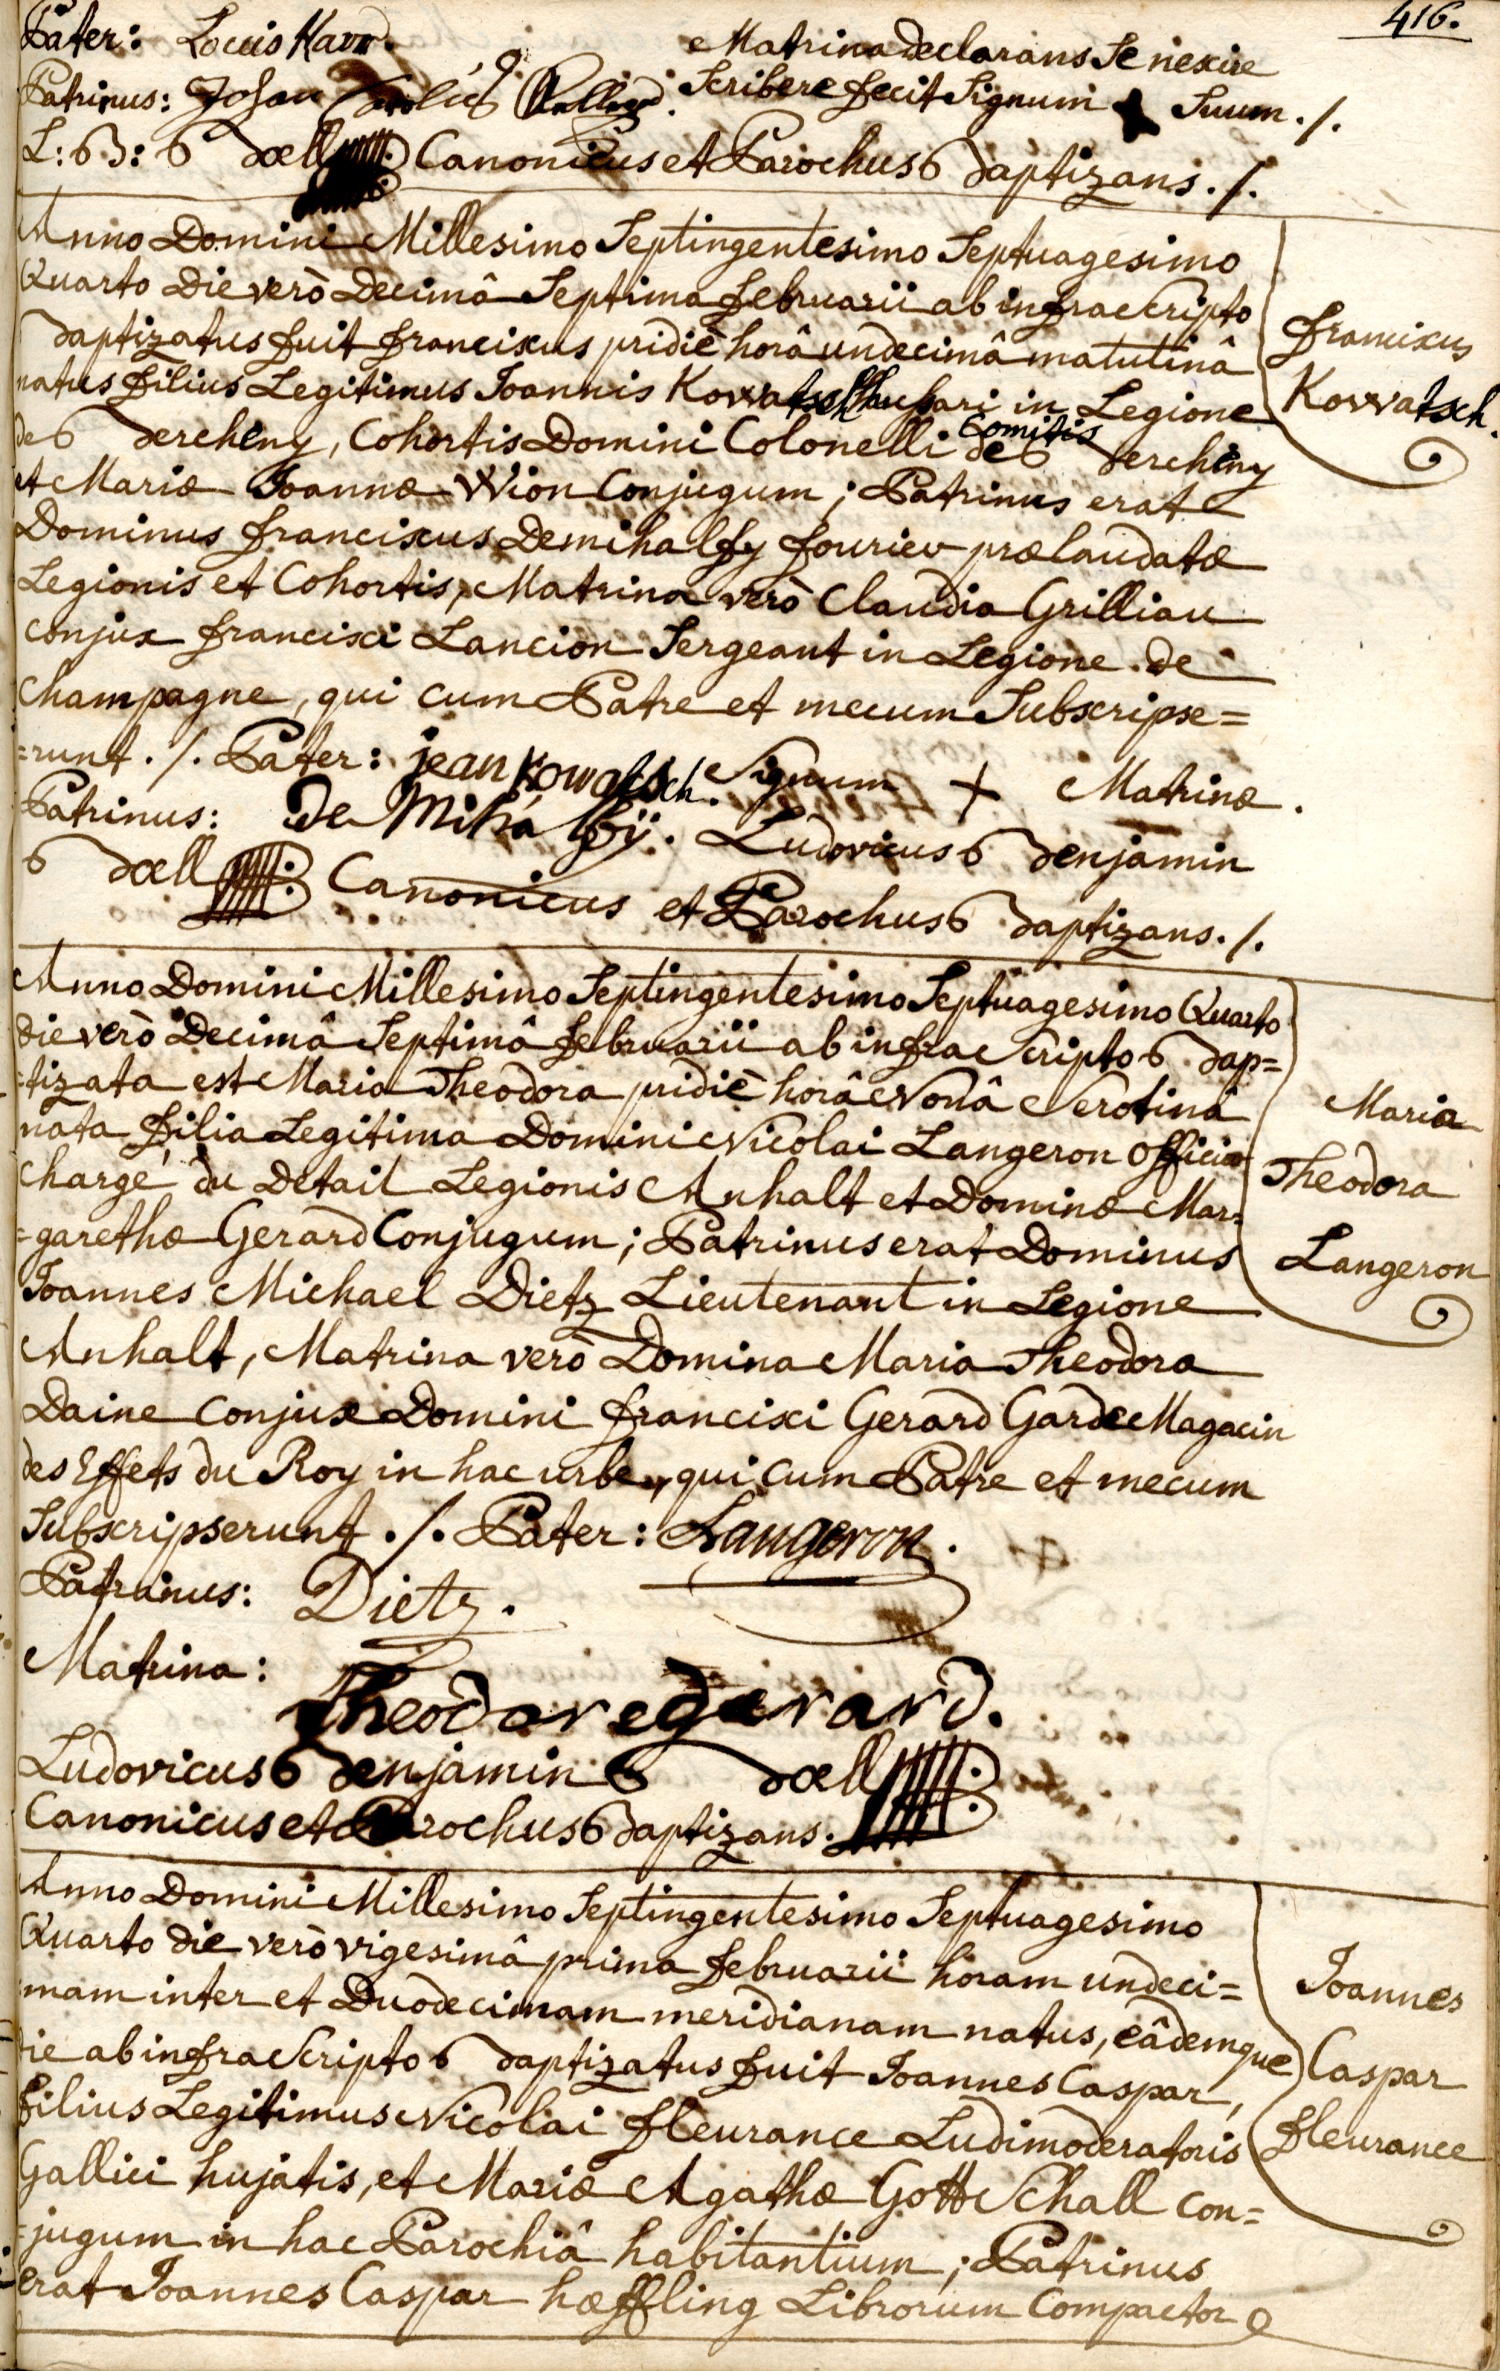 416.
Pater: Louis Kavr.
Matrina declarans Se nescire
Patrinus: Johan
Scribere fecit Signum + Suum ./.
L: B: Bœll Canonicus et Parochus Baptizans ./.
Anno Domini Millesimo Septingentesimo Septuagesimo
Quarto Die verò Decimâ Septima februarii ab infrascripto
Baptizatus fuit franciscus pridiè horâ undecimâ matutinâ
natus filius Legitimus Joannis Kovvatsch hussari in Legione
de Bercheny, Cohortis Domini Colonelli Comitis de Bercheny
et Mariæ Joannæ Wion Conjugum; Patrinus erat
Dominus franciscus Demihalfy fourier prælaudatæ
Legionis et Cohortis, Matrina verò Claudia Grilliau
conjux francisci Lancion Sergeant in Legione de
Champagne, qui cum Patre et mecum Subscripse=
=runt ./. Pater: jean Kowatsch. Signum + Matrinæ.
Patrinus: De Mihálfÿ. Ludovicus Benjamin
Bœll Canonicus et Parochus Baptizans ./.
franciscus
Kovvatsch.
Anno Domini Millesimo Septingentesimo Septuagesimo Quarto
die verò Decimâ Septimâ februarii ab infra Scripto Bap=
=tizata est Maria Theodora pridiè horâ Nonâ Serotinâ
nata filia Legitima Domini Nicolai Langeron Officier
chargé du Detail Legionis Anhalt et Dominæ Mar=
=garethæ Gerard Conjugum; Patrinus erat Dominus
Joannes Michael Dietz Lieutenant in Legione
Anhalt, Matrina verò Domina Maria Theodora
Daine conjux Domini francisci Gerard Garde Magacin
des Effets du Roy in hac urbe, qui cum Patre et mecum
Subscripserunt ./. Pater: Langeron.
Patrinus: Dietz.
Matrina:
Theodore gerard.
Ludovicus Benjamin Bœll
Canonicus et Parochus Baptizans.
Maria
Theodora
Langeron
Anno Domini Millesimo Septingentesimo Septuagesimo
Quarto die verò vigesimâ prima februarii horam undeci=
mam inter et Duodecimam meridianam natus, eâdemque
die ab infra Scripto Baptizatus fuit Joannes Caspar,
filius Legitimus Nicolai fleurance Ludimoderatoris
Gallici hujatis, et Mariæ Agathæ GottSchall con=
=jugum in hac Parochiâ habitantium; Patrinus
erat Joannes Caspar hœffling Librorum Compactor
Joannes
Caspar
fleurance